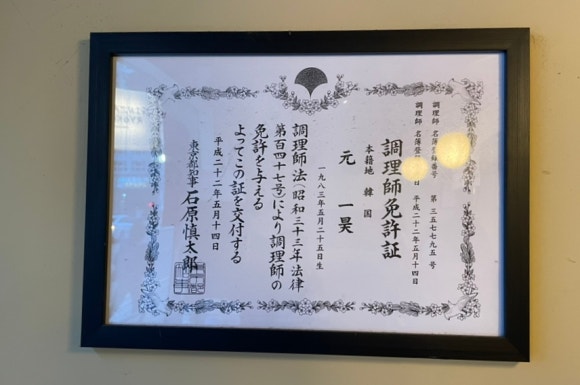 調理師 名簿登録番号 第 三五七七九五 号
調理師 名簿登 日 平成二十二年五月十四日
調理師免許証
本籍地 韓国
元 一昊
一九八三年五月二十五日生
調理師法(昭和三十三年法律
第百四十七号)により調理師の
免許を与える
よってこの証を交付する
平成二十二年五月十四日
東京都知事 石原慎太郎